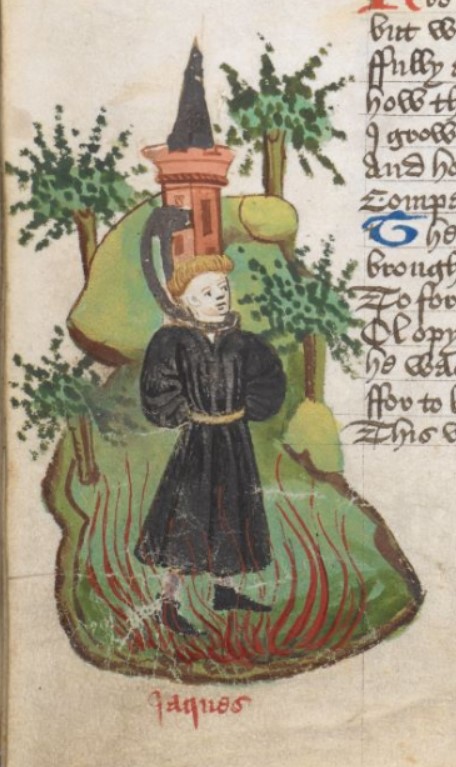 but w
ffully a
how th
I grow
And ho
Compa
The
brough
To for
Clopy
he wa
ffor to
This w
Jaques